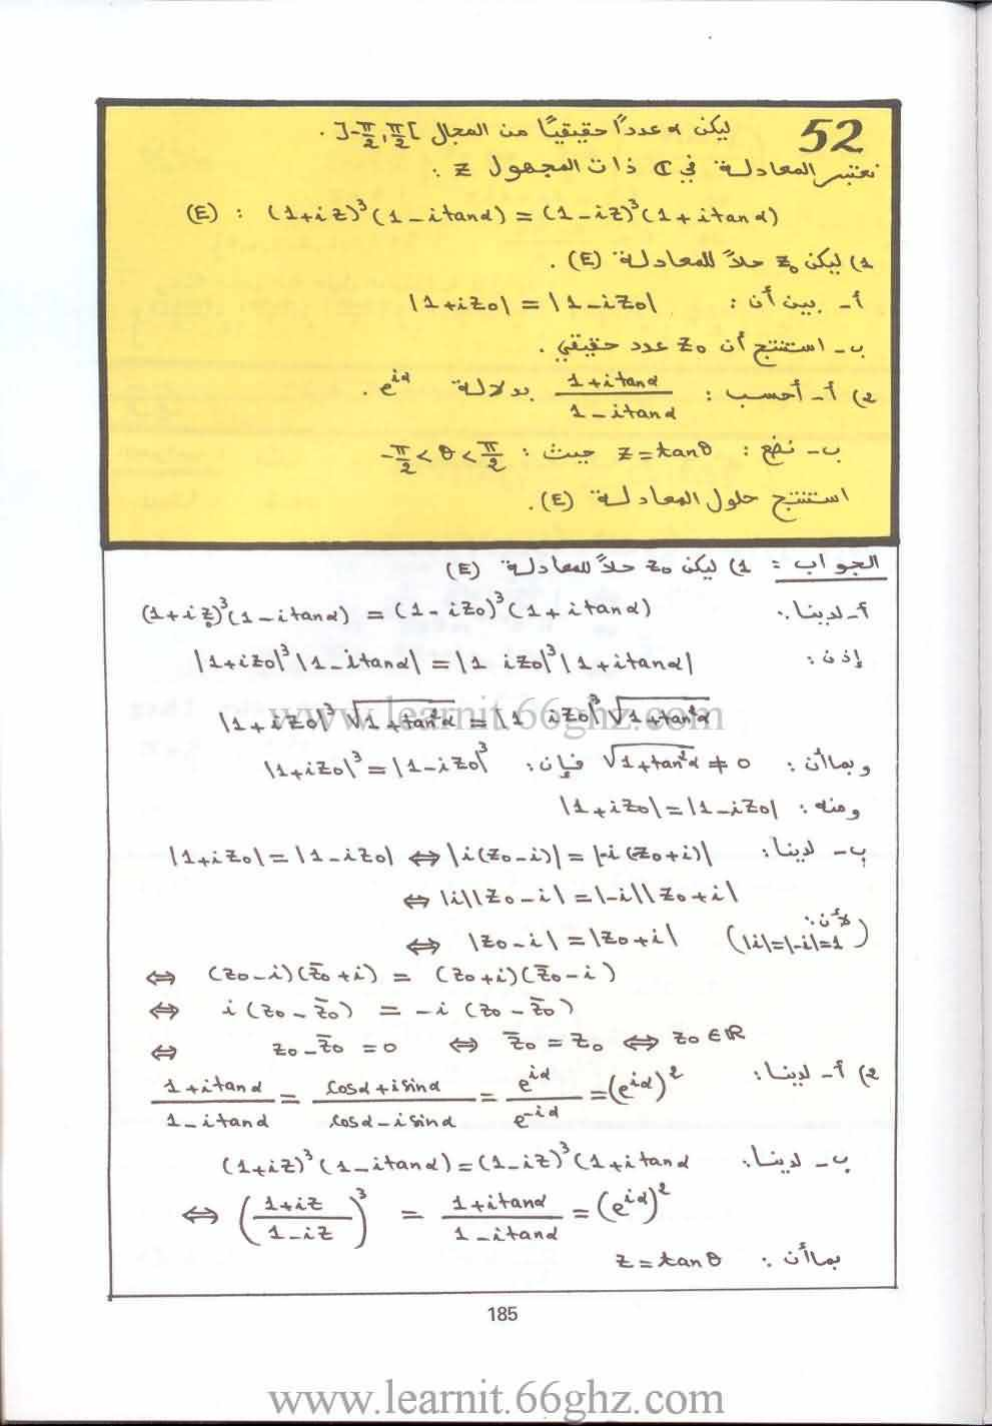 52 ليكن α عدداً حقيقيًا من المجال ]-π/2, π/2[ .
نعتبر المعادلة في ℂ ذات المجهول z :
(E) : (1+iz)³(1-itanα) = (1-iz)³(1+itanα)
1) ليكن z₀ حلاً للمعادلة (E) .
أ- بين أن : |1+iz₀| = |1-iz₀|
ب- استنتج أن z₀ عدد حقيقي .
2) أ- أحسب : (1+itanα)/(1-itanα) بدلالة e^{iα} .
ب- نضع : z=tanθ حيث : -π/2 < θ < π/2
استنتج حلول المعادلة (E).
الجواب : 1) ليكن z₀ حلاً للمعادلة (E)
أ- لدينا : (1+iz₀)³(1-itanα) = (1-iz₀)³(1+itanα)
إذن : |1+iz₀|³|1-itanα| = |1 iz₀|³|1+itanα|
|1+iz₀|³ √(1+tan²α) = |1 iz₀|³ √(1+tan²α)
www.learnit.66ghz.com
وبما أن : √(1+tan²α) ≠ 0 فإن : |1+iz₀|³ = |1-iz₀|³
ومنه : |1+iz₀| = |1-iz₀|
ب- لدينا : |1+iz₀| = |1-iz₀| ⇔ |i(z₀-i)| = |-i(z₀+i)|
⇔ |i||z₀-i| = |-i||z₀+i|
⇔ |z₀-i| = |z₀+i| (لأن : |i|=|-i|=1)
⇔ (z₀-i)(z̄₀+i) = (z₀+i)(z̄₀-i)
⇔ i(z₀-z̄₀) = -i(z₀-z̄₀)
⇔ z₀-z̄₀ = 0 ⇔ z̄₀ = z₀ ⇔ z₀ ∈ ℝ
2) أ- لدينا : (1+itanα)/(1-itanα) = (cosα+isinα)/(cosα-isinα) = e^{iα}/e^{-iα} = (e^{iα})²
ب- لدينا : (1+iz)³(1-itanα) = (1-iz)³(1+itanα
⇔ ((1+iz)/(1-iz))³ = (1+itanα)/(1-itanα) = (e^{iα})²
بما أن : z=tanθ
185
www.learnit.66ghz.com